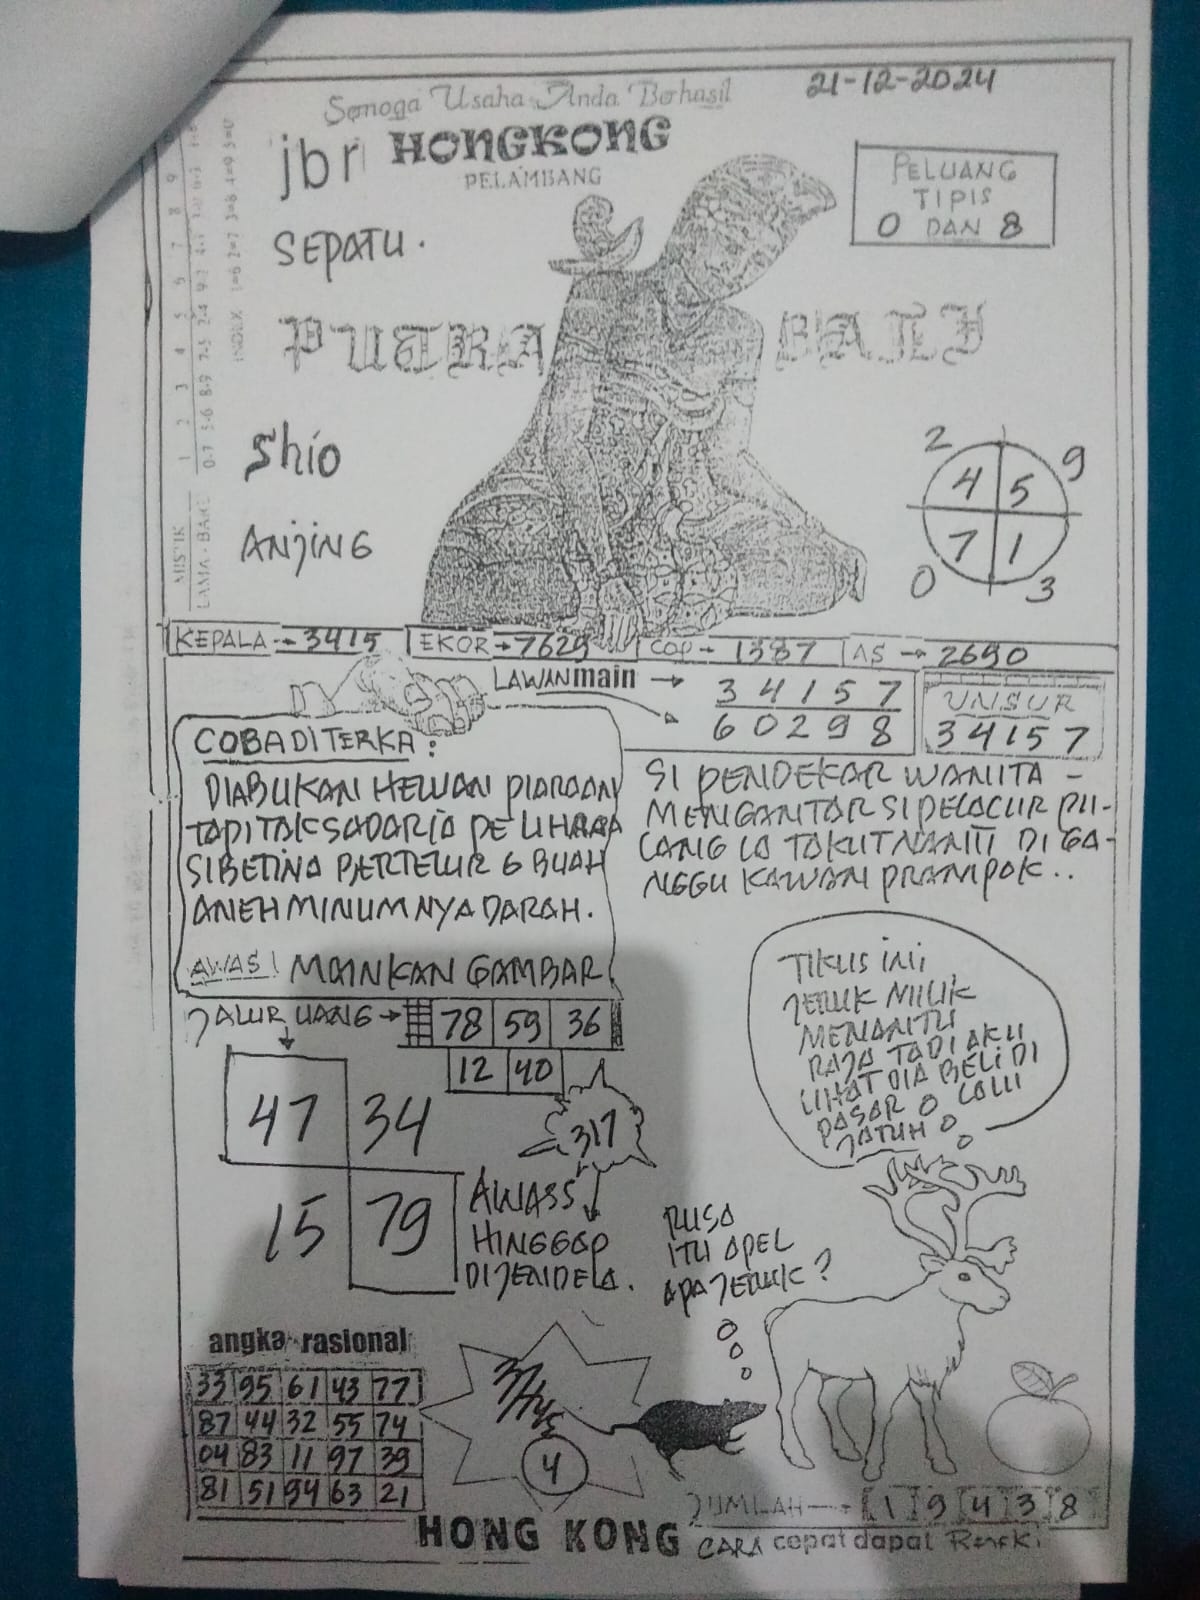 Semoga Usaha Anda Berhasil
21-12-2024
jbr HONGKONG
PELAMBANG
PELUANG
TIPIS
0 DAN 8
SEPATU.
PUTRA BALI
Shio
ANJING
2 9
4 5
7 1
0 3
MISTIK
1 2 3 4 5 6 7 8 9
INDEX
KEPALA → 3415 EKOR → 7629 COP → 1387 AS → 2690
LAWAN main → 34157
60298
UNSUR
34157
COBA DITERKA :
DIA BUKAN HEWAN PIARAAN
TAPI TAK SADAR IA PELIHARA
SI BETINA BERTELUR 6 BUAH
ANEH MINUMNYA DARAH.
AWAS! MAINKAN GAMBAR
SI PENDEKAR WANITA -
MENGANTAR SI PELACUR PU-
LANG IA TAKUT NANTI DI GA-
NGGU KAWAN PRAMPOK..
JALUR UANG → 78 59 36
12 40
47 34
15 79
317
AWASS
HINGGAP
DI JENDELA.
TIKUS INI
JERUK MILIK
MENANTU
RAJA TADI AKU
LIHAT DIA BELI DI
PASAR LALU
JATUH
RUSA
ITU APEL
APA JERUK?
angka rasional
33 95 61 43 77
87 44 32 55 74
04 83 11 97 39
81 51 94 63 21
4
JUMLAH → 1 9 4 3 8
HONG KONG CARA cepat dapat Rezeki